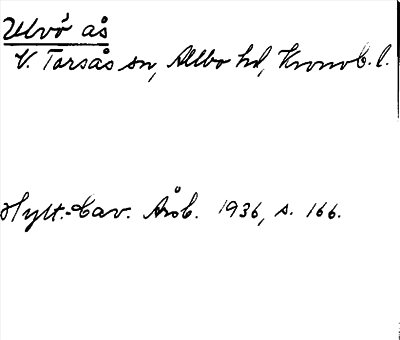 Ulvö ås
V. Torsås sn, Allbo hd, Kronob. l.
Hylt.-Cav. Årsb. 1936, s. 166.